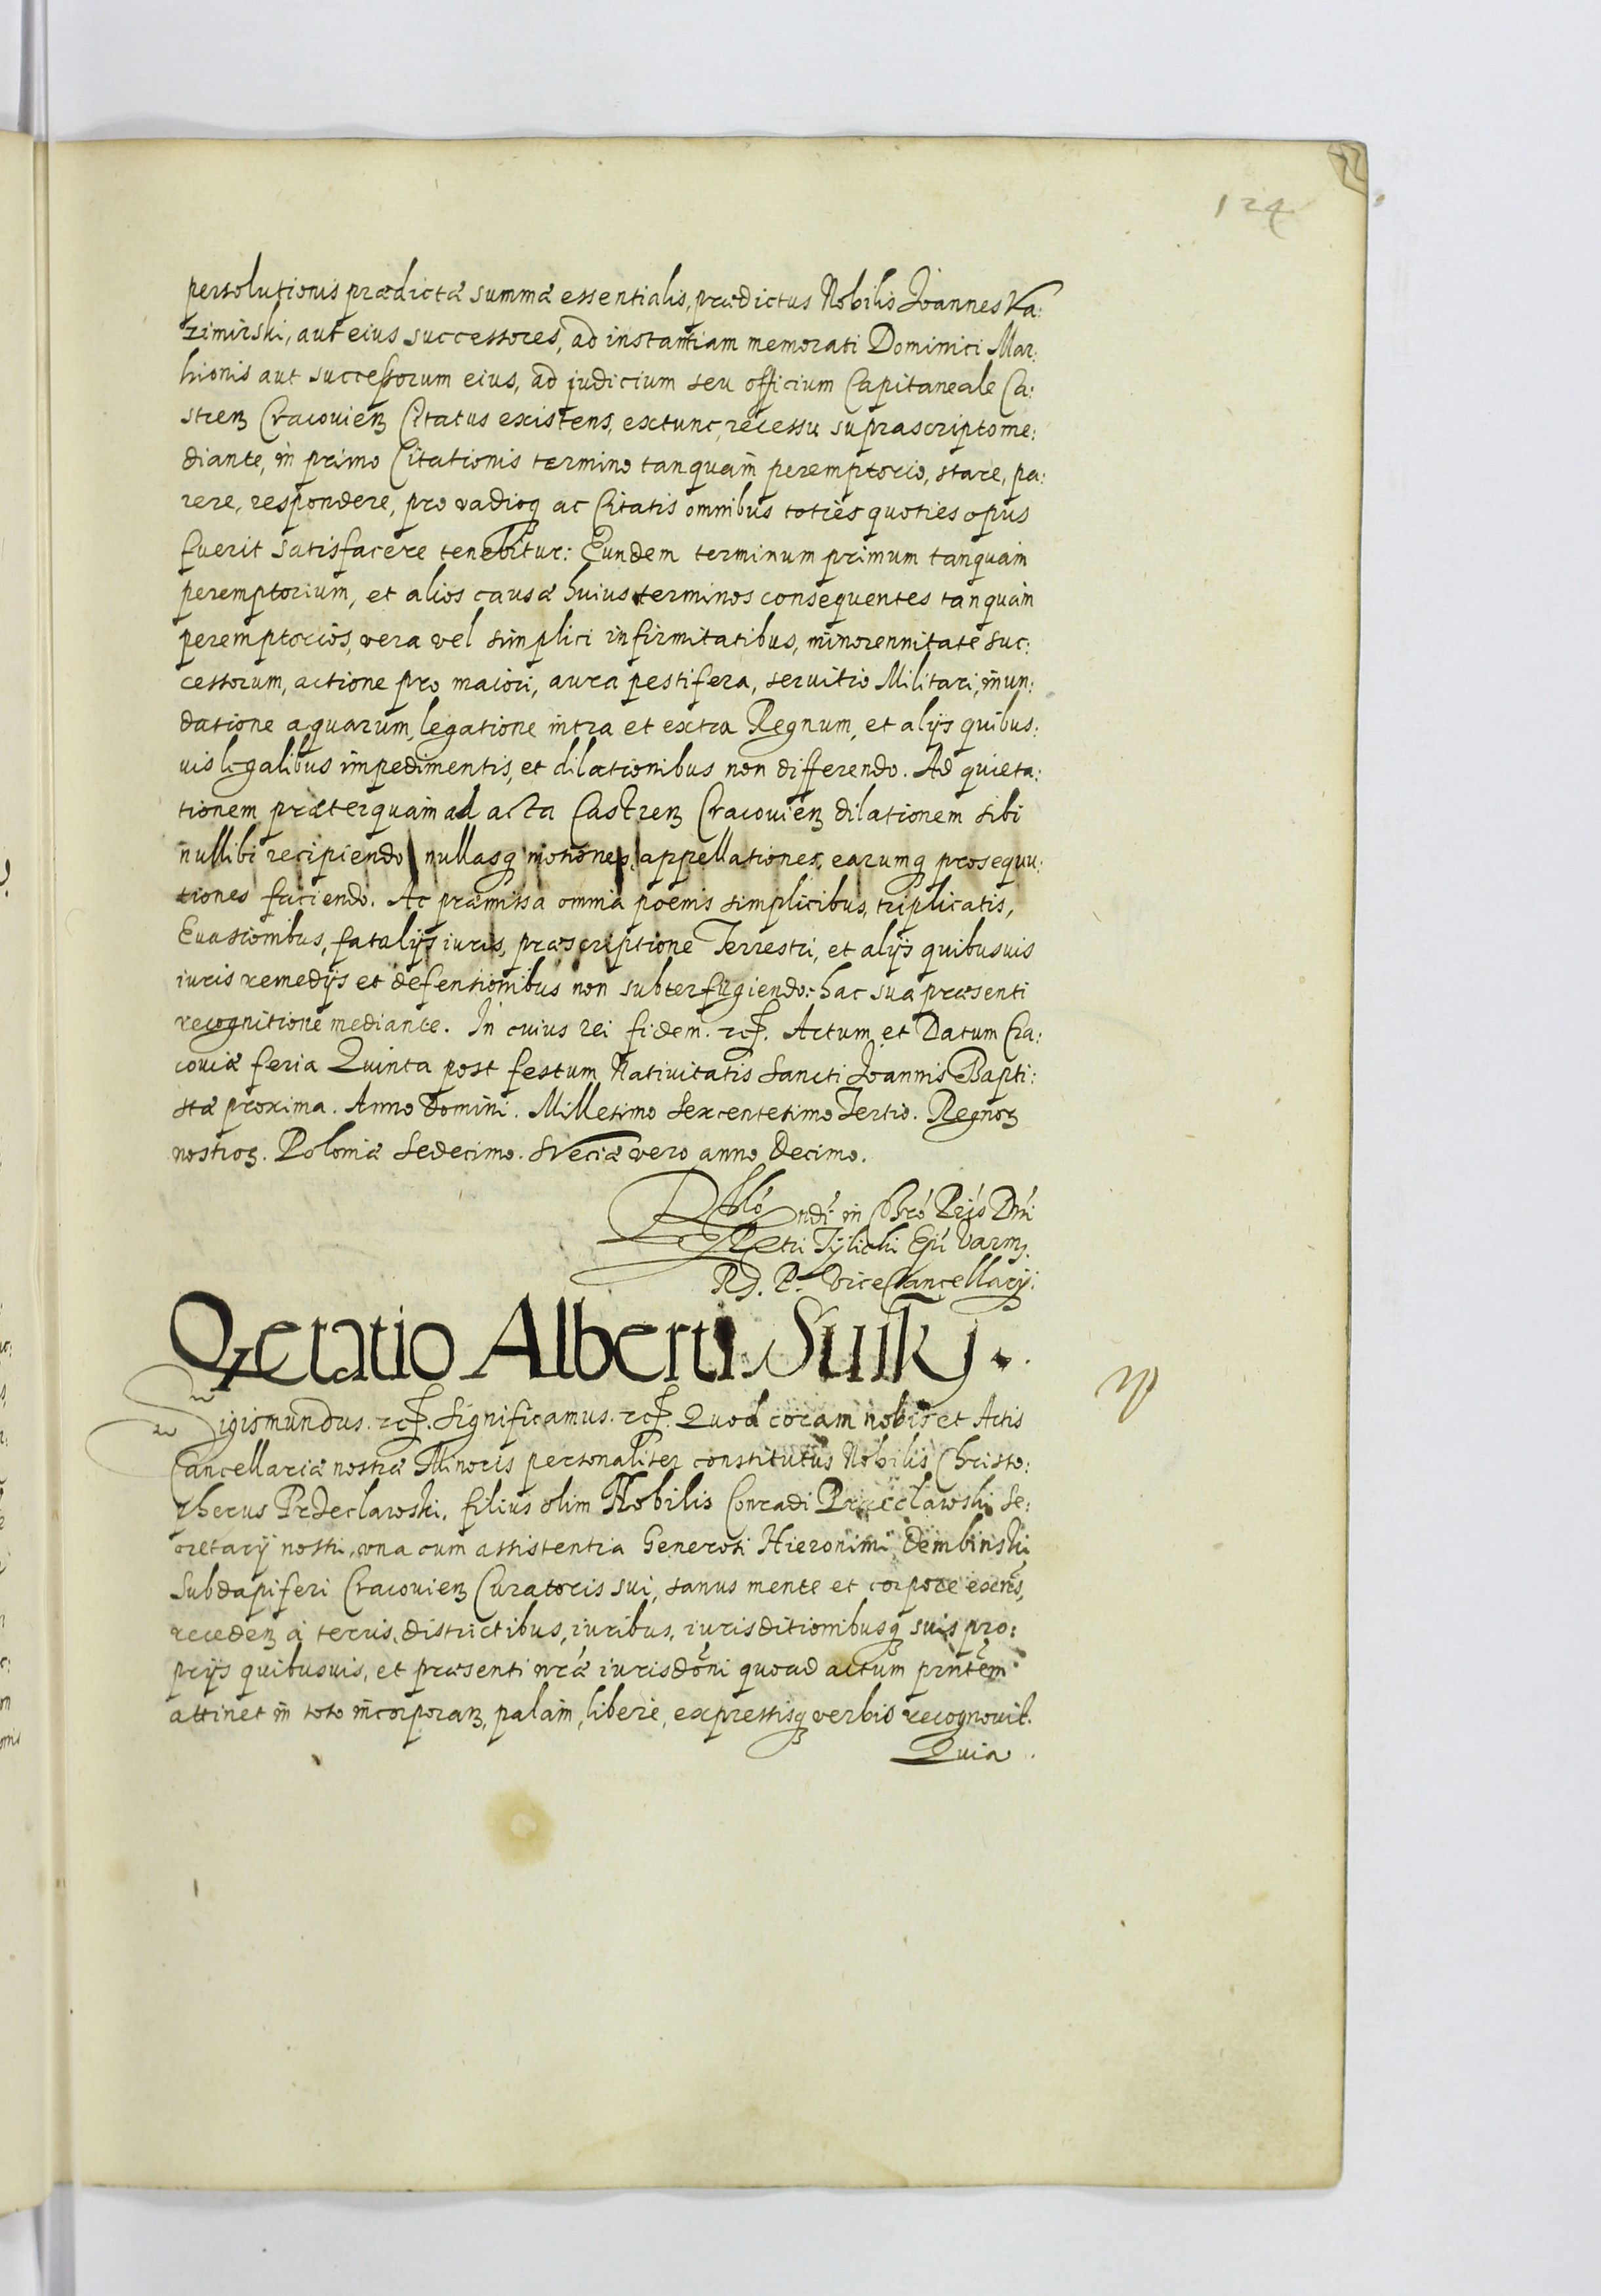 124
persolutionis prædictæ summæ essentialis, prædictus Nobilis Joannes Ka:
zimirski, aut eius successores, ad instantiam memorati Dominici Mar:
hionis aut successorum eius, ad judicium seu officium Capitaneale Ca:
stren Cracovien Citatus existens, extunc, recessu suprascripto me:
diante, in primo Citationis termino tanquam peremptorio, stare, pa:
rere, respondere, pro vadioq ac Citatis omnibus toties quoties opus
fuerit satisfacere tenebitur: Eundem terminum primum tanquam
peremptorium, et alios causæ huius terminos consequentes tanquam
peremptorios, vera vel simplici infirmitatibus, minorennitate suc:
cessorum, actione pro maiori, aura pestifera, servitio Militari, inun:
datione aquarum, legatione intra et extra Regnum, et alijs quibus:
vis legalibus impedimentis, et dilationibus non differendo. Ad quieta:
tionem præterquam ad acta Castren Cracovien dilationem sibi
nullibi recipiendo nullasq motiones, appellationes, earumq prosequu:
tiones faciendo. Ac præmissa omnia poenis simplicibus, triplicatis,
Evasionibus, fatalijs iuris, præscriptione Terrestri, et alijs quibusuis
iuris remedijs et defensionibus non subterfugiendo: hac sua præsenti
recognitione mediante. In cuius rei fidem. rcf. Actum et Datum Cra:
coviæ feria Quinta post festum Nativitatis Sancti Joannis Bapti:
stæ proxima. Anno Domini. Millesimo Sexcentesimo Tertio. Regnor
nostror. Poloniæ Sedecimo. Sveciæ vero anno Decimo.
Petri Tylicki Epi Varm.
R. P. Vice Cancellarij.
Qietatio Alberti Suisky.
Sigismundus. rcf. Significamus. rcf. Quod coram nobis et Actis
Cancellariæ nostræ Minoris personaliter constitutus Nobilis Christo:
pherus Przeclawski, filius olim Nobilis Conradi Przeclawski Se:
cretarij nostri, una cum assistentia Generosi Hieronimi Dembinski
Subdapiferi Cracovien Curatoris sui, sanus mente et corpore exñs,
receden a terris, districtibus, iuribus, iurisditionibusq suis pro:
prijs quibusuis, et præsenti nræ iurisdoni quoad actum pntem
attinet in toto incorporan, palam, libere, expressisq verbis recognovit.
Quia